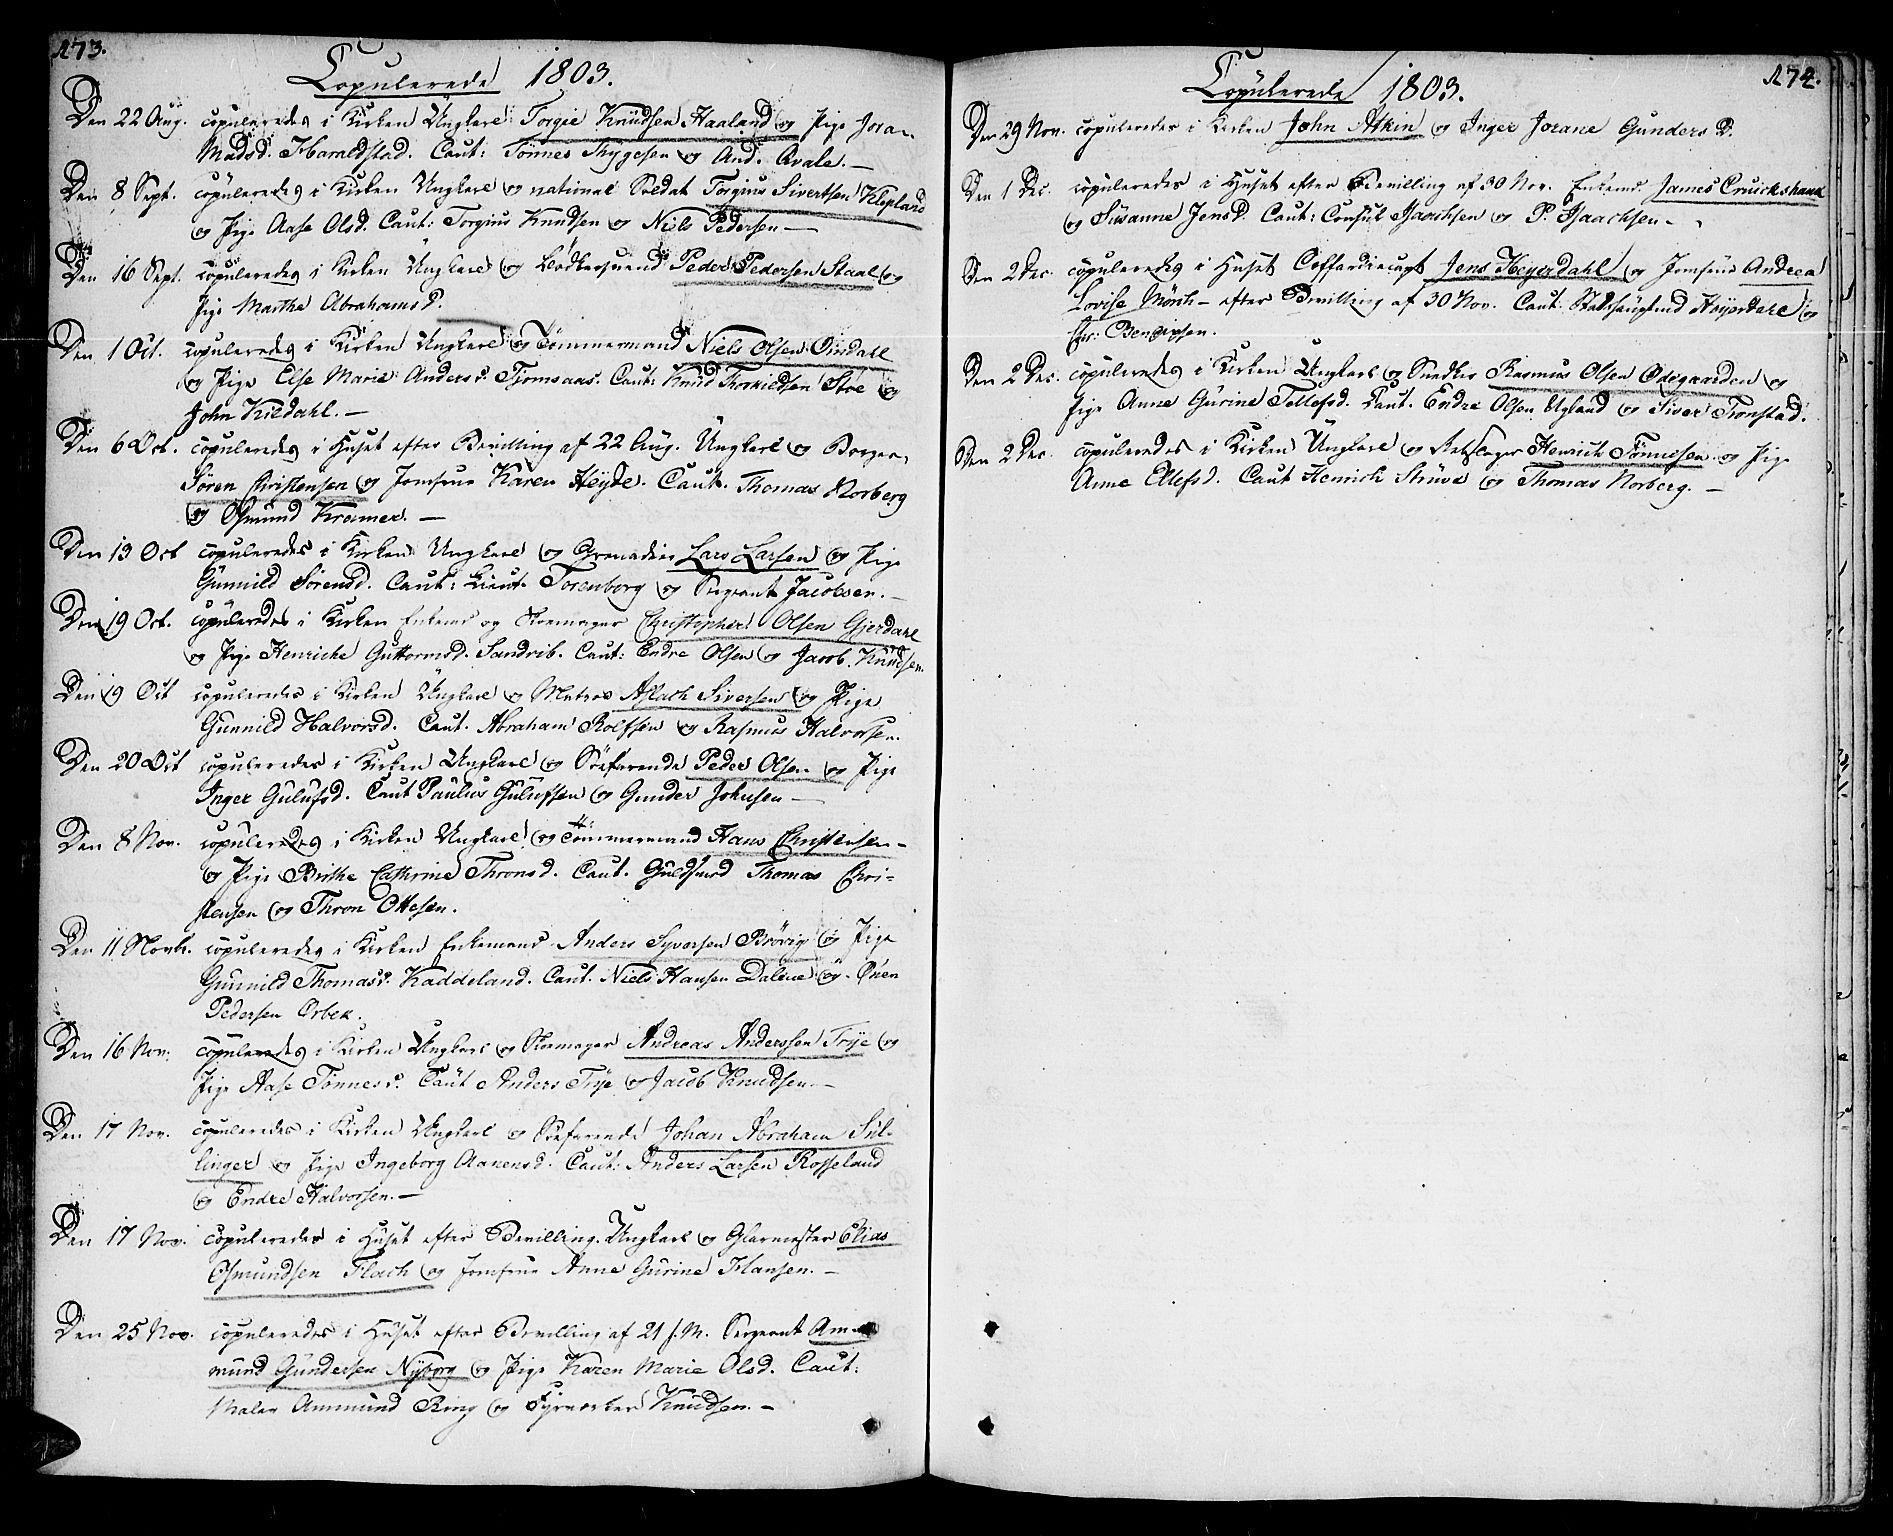 173.
Copulerede 1803.
Den 22 Aug. copuleredes i Kirken Ungkarl Torgie Knudsen Haaland og Pige Joran
Madsd. Haraldstad. Caut: Tønnes Thygesen og And. Qvale. —
Den 8 Sept. copuleredes i Kirken Ungkarl og national Soldat Torgius Sivertsen Klepland
og Pige Aase Olsd. Caut: Torgius Knudsen og Niels Pedersen —
Den 16 Sept. copuleredes i Kirken Ungkarl og Bødkersvend Peder Pedersen Staal og
Pige Marthe Abrahamsd.
Den 1 Oct. copuleredes i Kirken Ungkarl og Tømmermand Niels Olsen Omdahl
og Pige Else Marie Andersd. Tjomsaas. Caut: Knud Thorkildsen Stoe og
John Kildahl. —
Den 6 Oct. copuleredes i Huset efter Bevilling af 22 Aug. Ungkarl og Borger
Søren Christensen og Jomfrue Karen Heyde. Caut. Thomas Norberg
og Osmund Kramer. —
Den 13 Oct copuleredes i Kirken Ungkarl og Grenadier Lars Larsen og Pige
Gunnild Sørensd. Caut: Lieut. Torenborg og Sergeant Jacobsen. —
Den 19 Oct. copuleredes i Kirken Enkemd og Skoemager Christopher Olsen Gjerdahl
og Pige Henriche Guttormsd. Sandvib. Caut: Endre Olsen og Jacob Knudsen.
Den 19 Oct copuleredes i Kirken Ungkarl og Matros Aslach Siversen og Pige
Gunnild Halvorsd. Caut. Abraham Rolfsen og Rasmus Halvorsen.
Den 20 Oct copuleredes i Kirken Ungkarl og Søefarende Peder Olsen og Pige
Inger Gulufsd. Caut Paulus Gulufsen og Gunder Johnsen —
Den 8 Nov. copuleredes i Kirken Ungkarl og Tømmermand Hans Christensen
og Pige Brithe Cathrine Thronsd. Caut. Guldsmed Thomas Chri-
stensen og Thron Ottesen.
Den 11 Novb. copuleredes i Kirken Enkemand Anders Syversen Brøvig og Pige
Gunnild Thomasd. Kaddeland. Caut. Niels Hansen Dalene og Ouen
Pedersen Orbek.
Den 16 Nov. copuleredes i Kirken Ungkarl og Skoemager Andreas Anderssen Trye og
Pige Aase Tønnesd. Caut Anders Trye og Jacob Knudsen. —
Den 17 Nov. copuleredes i Kirken Ungkarl og Søefarende Johan Abraham Sul-
linger og Pige Ingeborg Aanensd. Caut: Anders Larsen Rosseland
og Endre Halvorsen. —
Den 17 Nov. copuleredes i Huset efter Bevilling. Ungkarl og Glarmester Elias
Osmundsen Flach og Jomfrue Anne Gurine Hansen. —
Den 25 Nov. copuleredes i Huset efter Bevilling af 21 s. M. Sergeant Am-
mund Gundersen Nyborg og Pige Karen Marie Olsd. Caut:
Maler Ammund Ring og Fyrverker Knudsen. —
174.
Copulerede 1803.
Den 29 Nov. copuleredes i Kirken John Atkin og Inger Jorane Gunders D.
Den 1 Dec. copuleredes i Huset efter Bevilling af 30 Nov. Enkemd James Cruickshank
og Susanne JensD. Caut: Consul Isaachsen og P. Isaachsen —
Den 2 Dec. copuleredes i Huset Coffardiecapt Jens Heyerdahl og Jomfrue Andrea
Lovise Mörch — efter Bevilling af 30 Nov. Caut: Stadshauptmd Heyerdahl og
Chr: Bendixsen.
Den 2 Dec. copuleredes i Kirken Ungkarl og Snedker Rasmus Olsen Ødegaarden og
Pige Anne Gurine Tellefsd. Caut. Endre Olsen Ugland og Siver Tronstad.
Den 2 Dec. copuleredes i Kirken Ungkarl og Rebslager Henrich Tönnesen og Pige
Anne Ellefsd. Caut Henrich Struve og Thomas Norberg. —